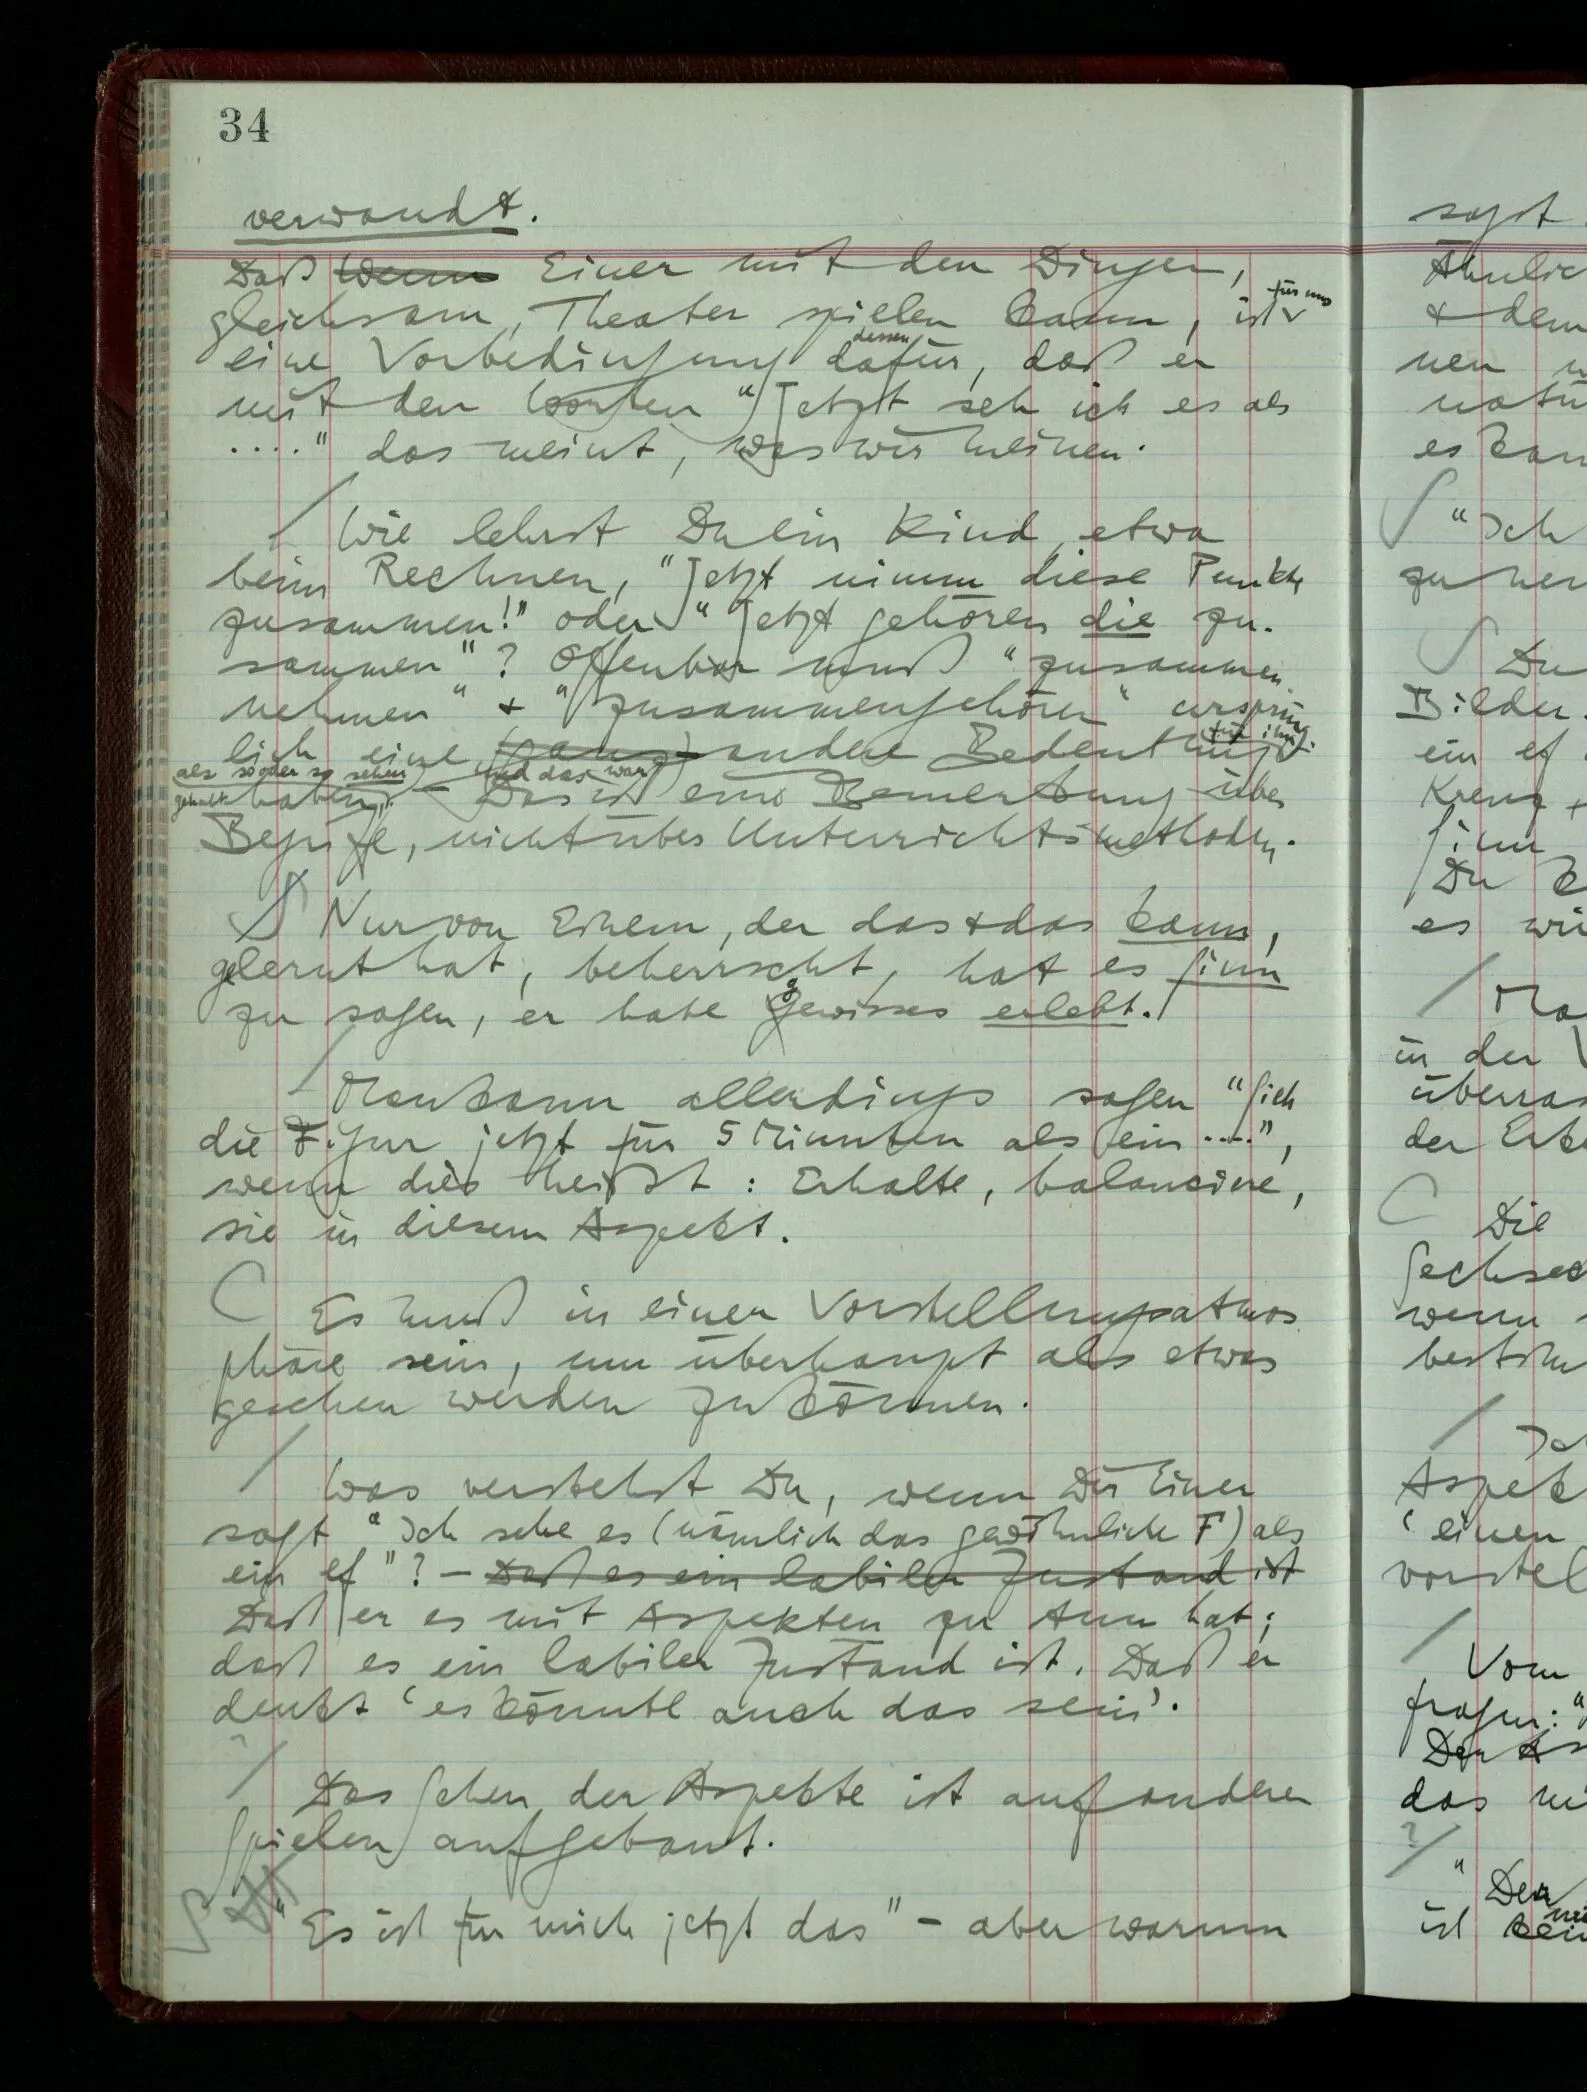 34
verwandt.
Daß Wenn Einer mit den Dingen,
gleichsam, Theater spielen kann, ist für uns
eine Vorbedingung dafür dessen, daß er
mit den Worten "Jetzt seh ich es als
...." das meint, was wir meinen.
Wie lehrst Du ein Kind, etwa
beim Rechnen, "Jetzt nimm diese Punkte
zusammen!" oder "Jetzt gehören die zu-
sammen"? Offenbar muß "zusammen-
nehmen" + "zusammengehören" ursprüng-
lich eine (ganz) andere Bedeutung für ihn
als so oder so sehen gehabt haben, – Und das war Das ist eine Bemerkung über
Begriffe, nicht über Unterrichtsmethoden.
Nur von Einem, der das + das kann,
gelernt hat, beherrscht, hat es Sinn
zu sagen, er habe gewisses erlebt.
Man kann allerdings sagen "Sieh
die Figur jetzt für 5 Minuten als ein ....",
wenn dies heißt: Erhalte, balanciere,
sie in diesem Aspekt.
Es muß in einer Vorstellungsatmos
phäre sein, um überhaupt als etwas
gesehen werden zu können.
Was verstehst Du, wenn Dir Einer
sagt "Ich sehe es (nämlich das gewöhnliche F) als
ein ef"? – Daß es ein labiler Zustand ist
Daß er es mit Aspekten zu tun hat;
daß es ein labiler Zustand ist. Daß er
denkt 'es könnte auch das sein'.
?
Das Sehen der Aspekte ist auf anderen
Spielen aufgebaut.
"Es ist für mich jetzt das" – aber warum
sagst
Ähnlic
+ dem
nen
natü
es kan
"Ich
Du
Bilder.
ein ef
Kreuz +
Sinn
Du
es wü
Ma
in der V
überras
der Erk
Die
Sechsec
wenn
bestim
Aspek
'einen
vorstel
Vom
fragen: "
Der As
das
?
"Der
ist kein